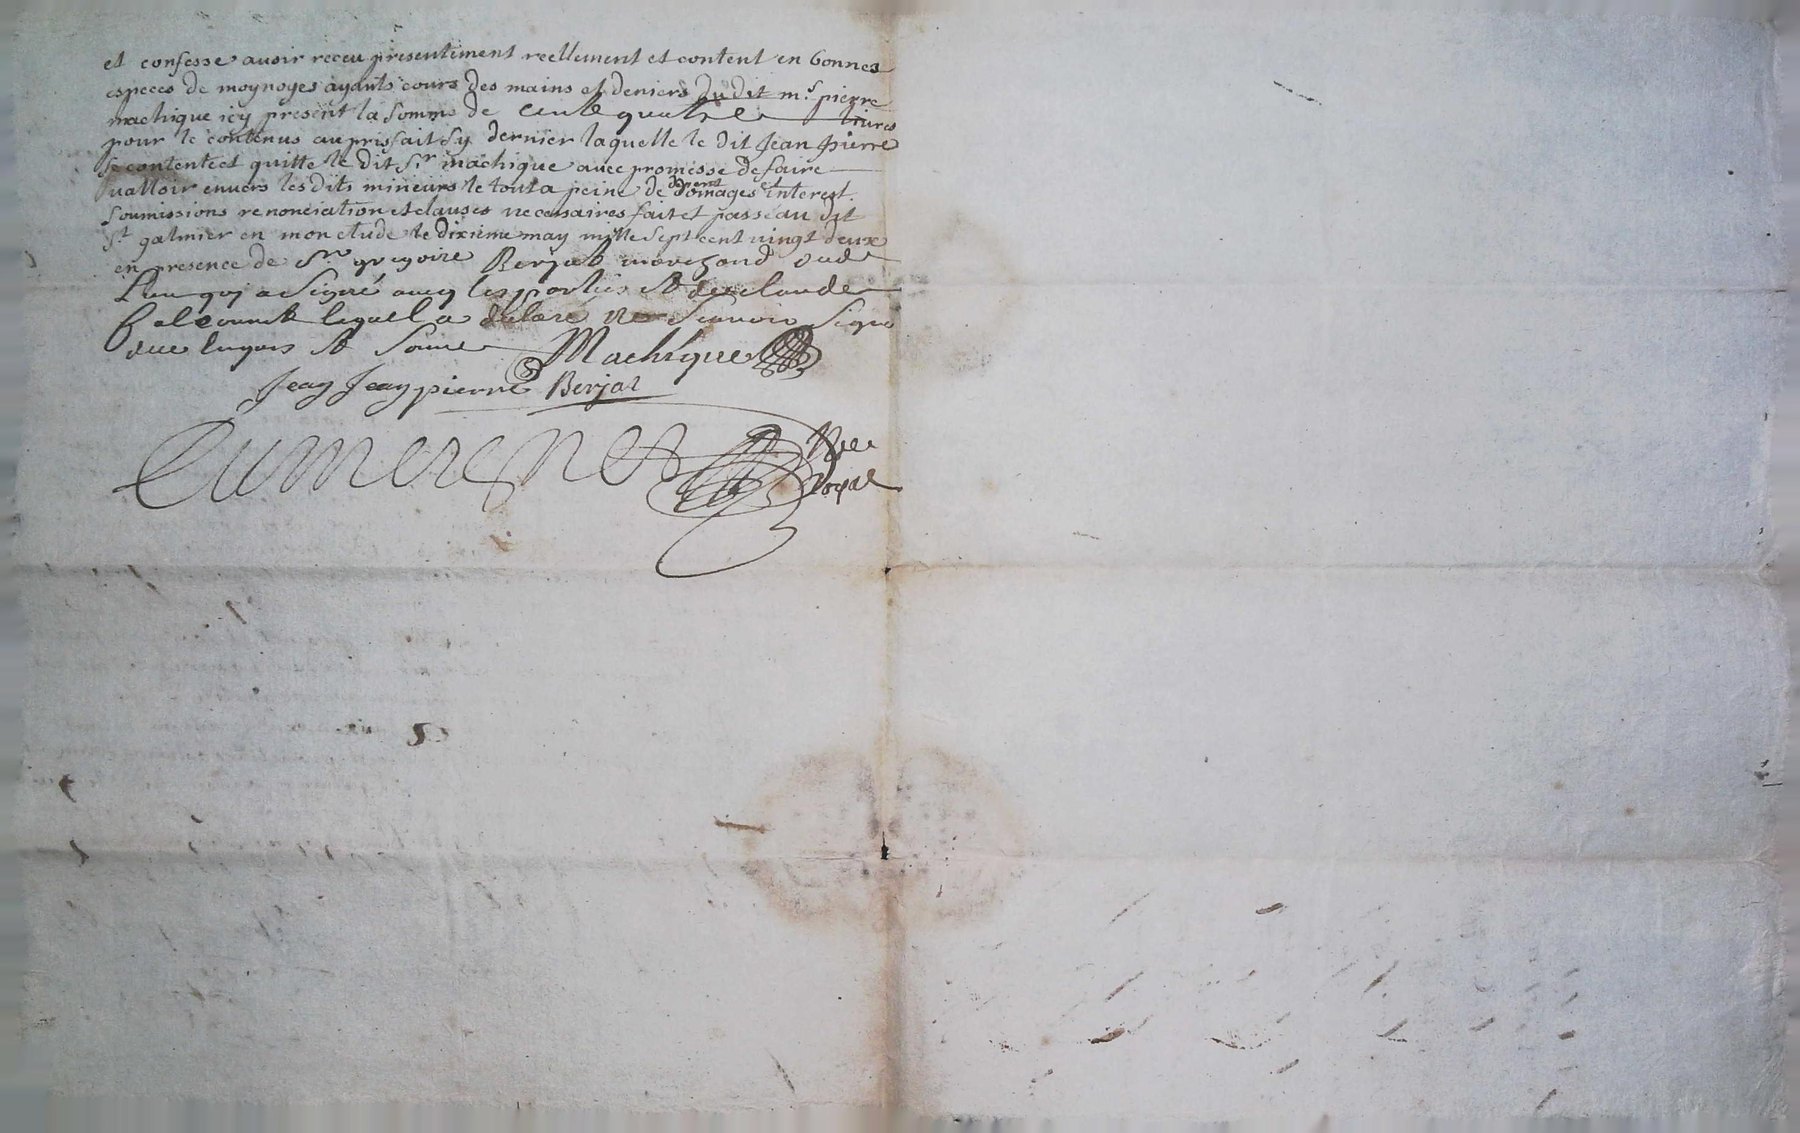 et confesse auoir receu presentement reellement et content en bonnes
especes de moynoyes ayants cours des mains et deniers du dit m.^s pierre
machique icy present la somme de cent quatre livres
pour le contenus au prisfait sy dernier laquelle le dit Jean pierre
se contente et quitte le dit s.^r machique auec promesse de faire
valloir enuers les dits mineurs le tout a peine de domages et interest
soumissions renonciation et clauses necessaires fait et passé au dit
s^t galmier en mon etude le dixieme may mille sept cent vingt deux
en presence de s^r gregoire Berjat marchand dud
lieu qui a signé aueq les parties & de claude
lequel a declaré ne scauoir signé
de ce enquis & somé Machique
Jean Jean pierre Berjat
Nre
Royal